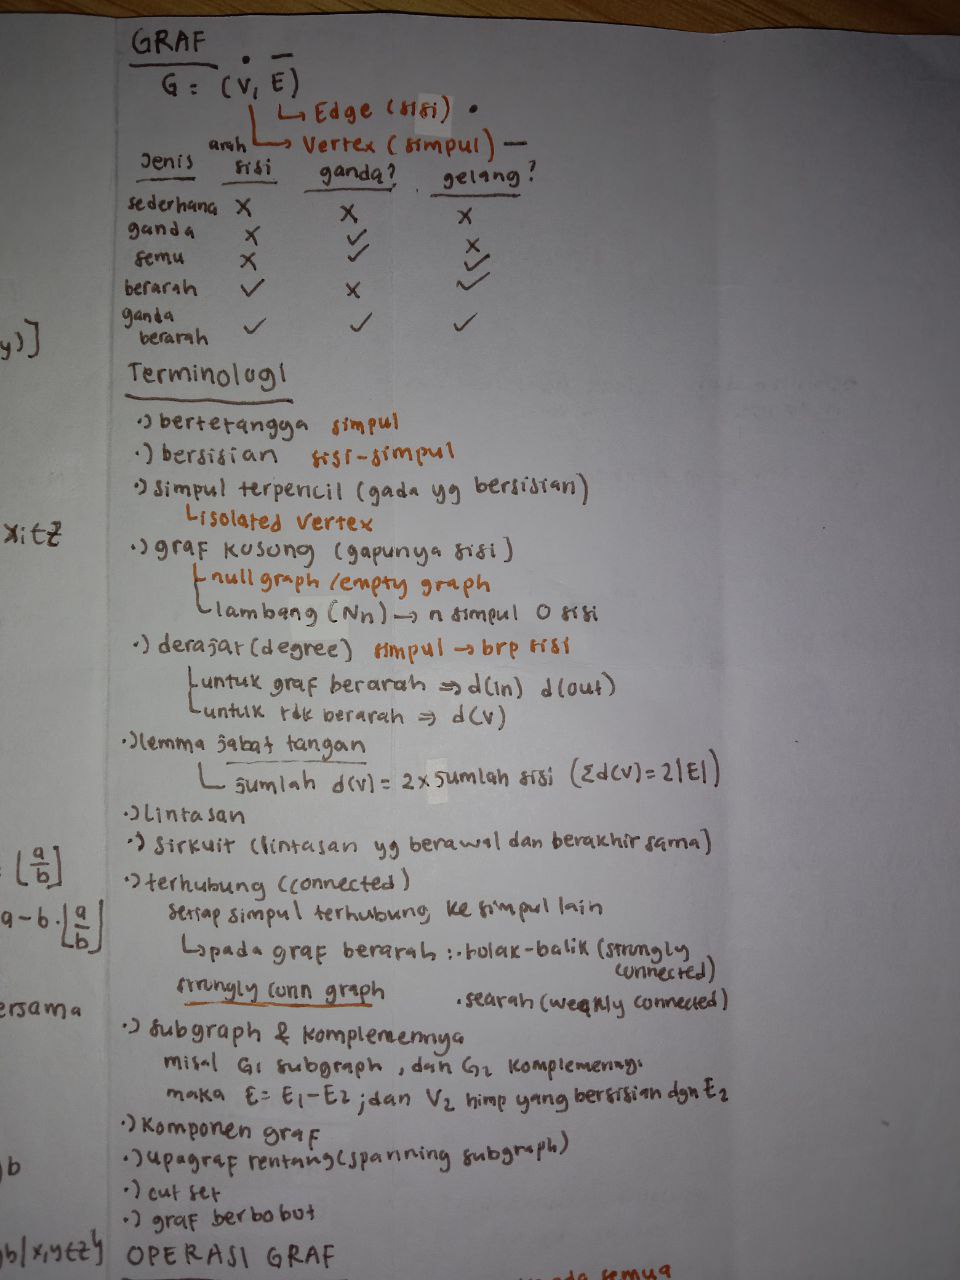 GRAF
G = (V, E)
Edge (sisi)
Vertex (simpul)
Jenis arah sisi ganda? gelang?
sederhana x x x
ganda x ✓ x
semu x ✓ ✓
berarah ✓ x ✓
ganda berarah ✓ ✓ ✓
Terminologi
·) bertetangga simpul
·) bersisian sisi-simpul
·) simpul terpencil (gada yg bersisian)
isolated vertex
·) graf kosong (gapunya sisi)
null graph / empty graph
lambang (Nn) → n simpul 0 sisi
·) derajat (degree) simpul → brp sisi
untuk graf berarah ⇒ d(in) d(out)
untuk tdk berarah ⇒ d(v)
·) lemma jabat tangan
jumlah d(v) = 2 x jumlah sisi (Σd(v) = 2|E|)
·) lintasan
·) sirkuit (lintasan yg berawal dan berakhir sama)
·) terhubung (connected)
setiap simpul terhubung ke simpul lain
↳ pada graf berarah : · tolak-balik (strongly
connected)
strongly conn graph · searah (weakly connected)
·) subgraph & komplemennya
misal G1 subgraph, dan G2 komplemennya
maka E = E1 - E2 ; dan V2 himp yang bersisian dgn E2
·) komponen graf
·) upagraf rentang (spanning subgraph)
·) cut set
·) graf berbobot
OPERASI GRAF
semua
y)]
xitz
= ⌊a/b⌋
a - b · ⌊a/b⌋
ersama
b